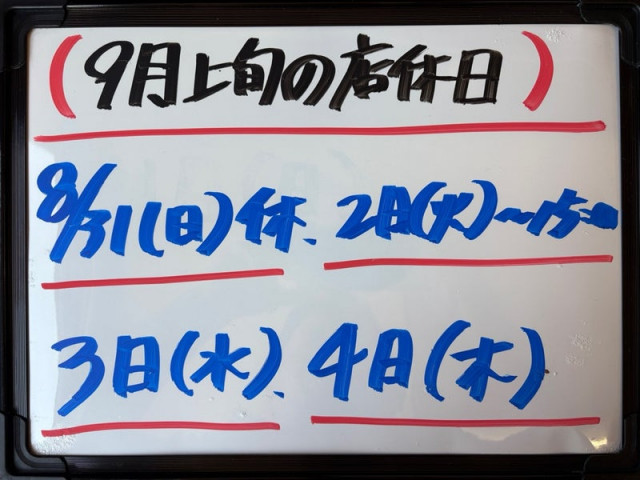 (9月上旬の店休日)
8/31(日)休、2日(火)〜15:00
3日(水)、4日(木)